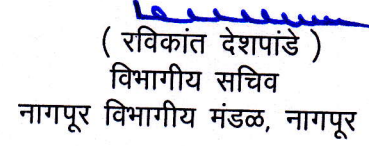 ( रविकांत देशपांडे )
विभागीय सचिव
नागपूर विभागीय मंडळ, नागपूर